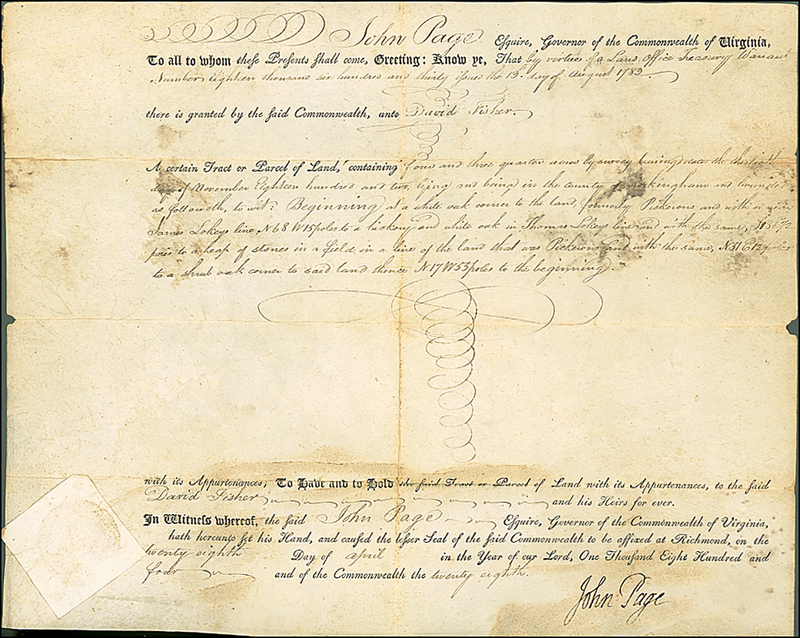 John Page Esquire, Governor of the Commonwealth of Virginia,
To all to whom these Presents shall come, Greeting: Know ye, That by virtue of a Land Office Treasury Warrant
Number eighteen thousand six hundred and thirty issued the 13. day of August 1783
there is granted by the said Commonwealth, unto David Fisher.
A certain Tract or Parcel of Land, containing four and three quarter acres by survey bearing date the day of November Eighteen hundred and two, lying and being in the county of Rockingham and bounded
as followeth, to wit: Beginning at a white oak corner to the land, formerly and with
James Lokeys line N 68 W 15 poles to a hickory and white oak in Thomas Lokeys line and with the same,
poles to a heap of stones in a field, in a line of the land that was and with the same,
to a shrub oak corner to said land thence N 17 W 53 poles to the beginning
with its Appurtenances; To Have and to Hold the said Tract or Parcel of Land with its Appurtenances, to the said
David Fisher and his Heirs for ever.
In Witness whereof, the said John Page Esquire, Governor of the Commonwealth of Virginia,
hath hereunto set his Hand, and caused the lesser Seal of the said Commonwealth to be affixed at Richmond, on the
twenty eighth Day of April in the Year of our Lord, One Thousand Eight Hundred and
four and of the Commonwealth the twenty eighth.
John Page